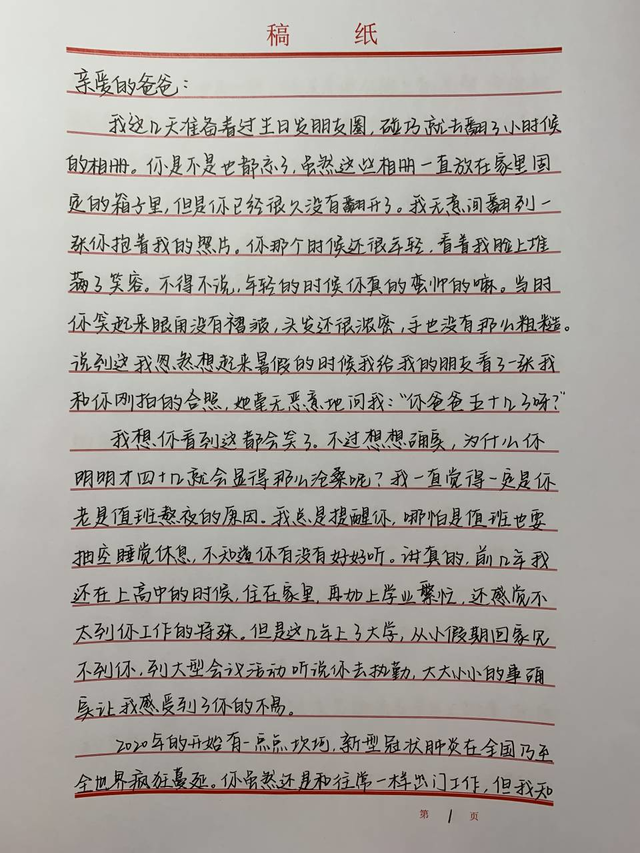 稿 纸
亲爱的爸爸：
我这几天准备着过生日发朋友圈，碰巧就去翻了小时候
的相册。你是不是也都忘了，虽然这些相册一直放在家里固
定的箱子里，但是你已经很久没有翻开了。我无意间翻到一
张你抱着我的照片。你那个时候还很年轻，看着我脸上堆
满了笑容。不得不说，年轻的时候你真的蛮帅的嘛。当时
你笑起来眼角没有褶皱，头发还很浓密，手也没有那么粗糙。
说到这我忽然想起来暑假的时候我给我的朋友看了一张我
和你刚拍的合照，她毫无恶意地问我：“你爸爸五十几了呀？”
我想你看到这都会笑了。不过想想确实，为什么你
明明才四十几就会显得那么沧桑呢？我一直觉得一定是你
老是值班熬夜的原因。我总是提醒你，哪怕是值班也要
抽空睡觉休息，不知道你有没有好好听。讲真的，前几年我
还在上高中的时候，住在家里，再加上学业繁忙，还感觉不
太到你工作的特殊。但是这几年上了大学，从小假期回家见
不到你，到大型会议活动听说你去执勤，大大小小的事确
实让我感受到了你的不易。
2020年的开始有一点点坎坷，新型冠状肺炎在全国乃至
全世界疯狂蔓延。你虽然还是和往常一样出门工作，但我知
第 1 页